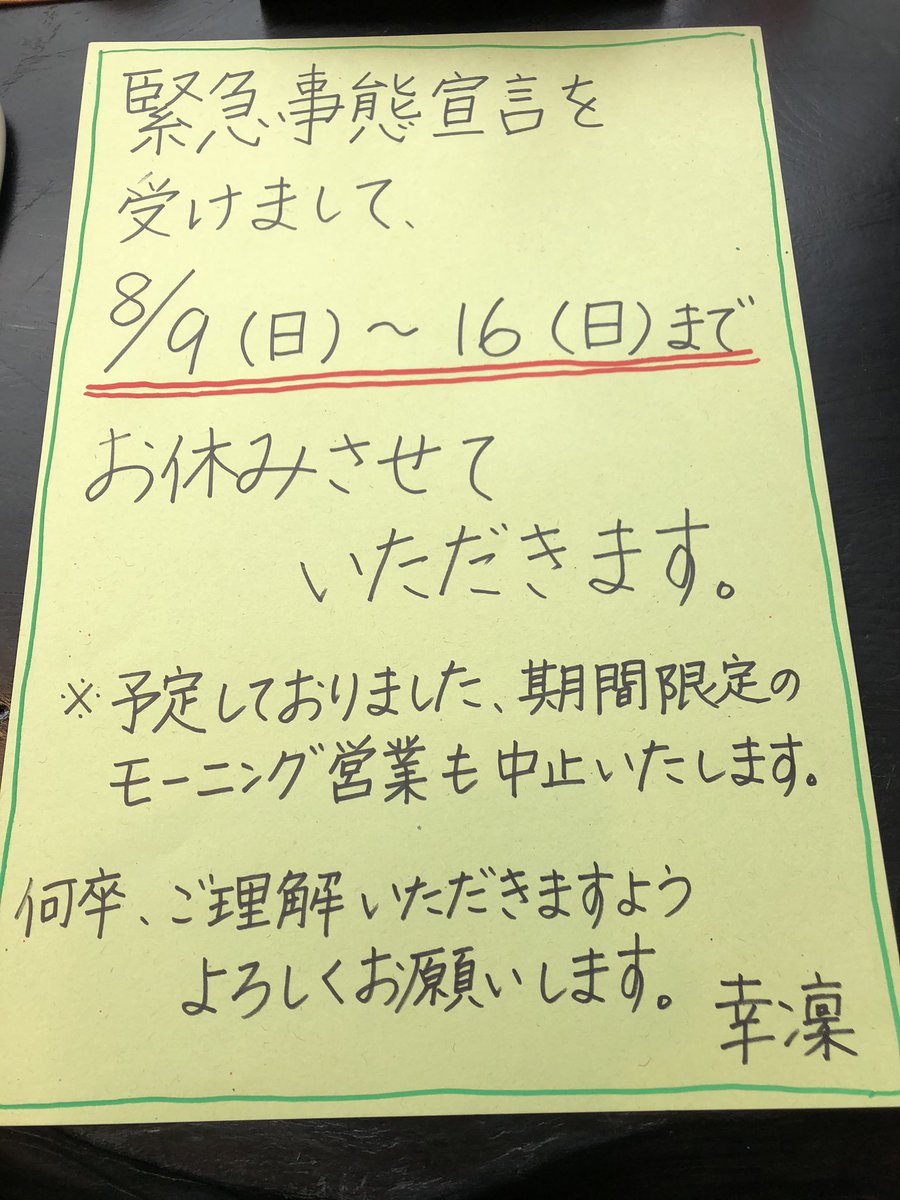 緊急事態宣言を
受けまして、
8/9(日)～16(日)まで
お休みさせて
いただきます。
※予定しておりました、期間限定の
モーニング営業も中止いたします。
何卒、ご理解いただきますよう
よろしくお願いします。
幸凜